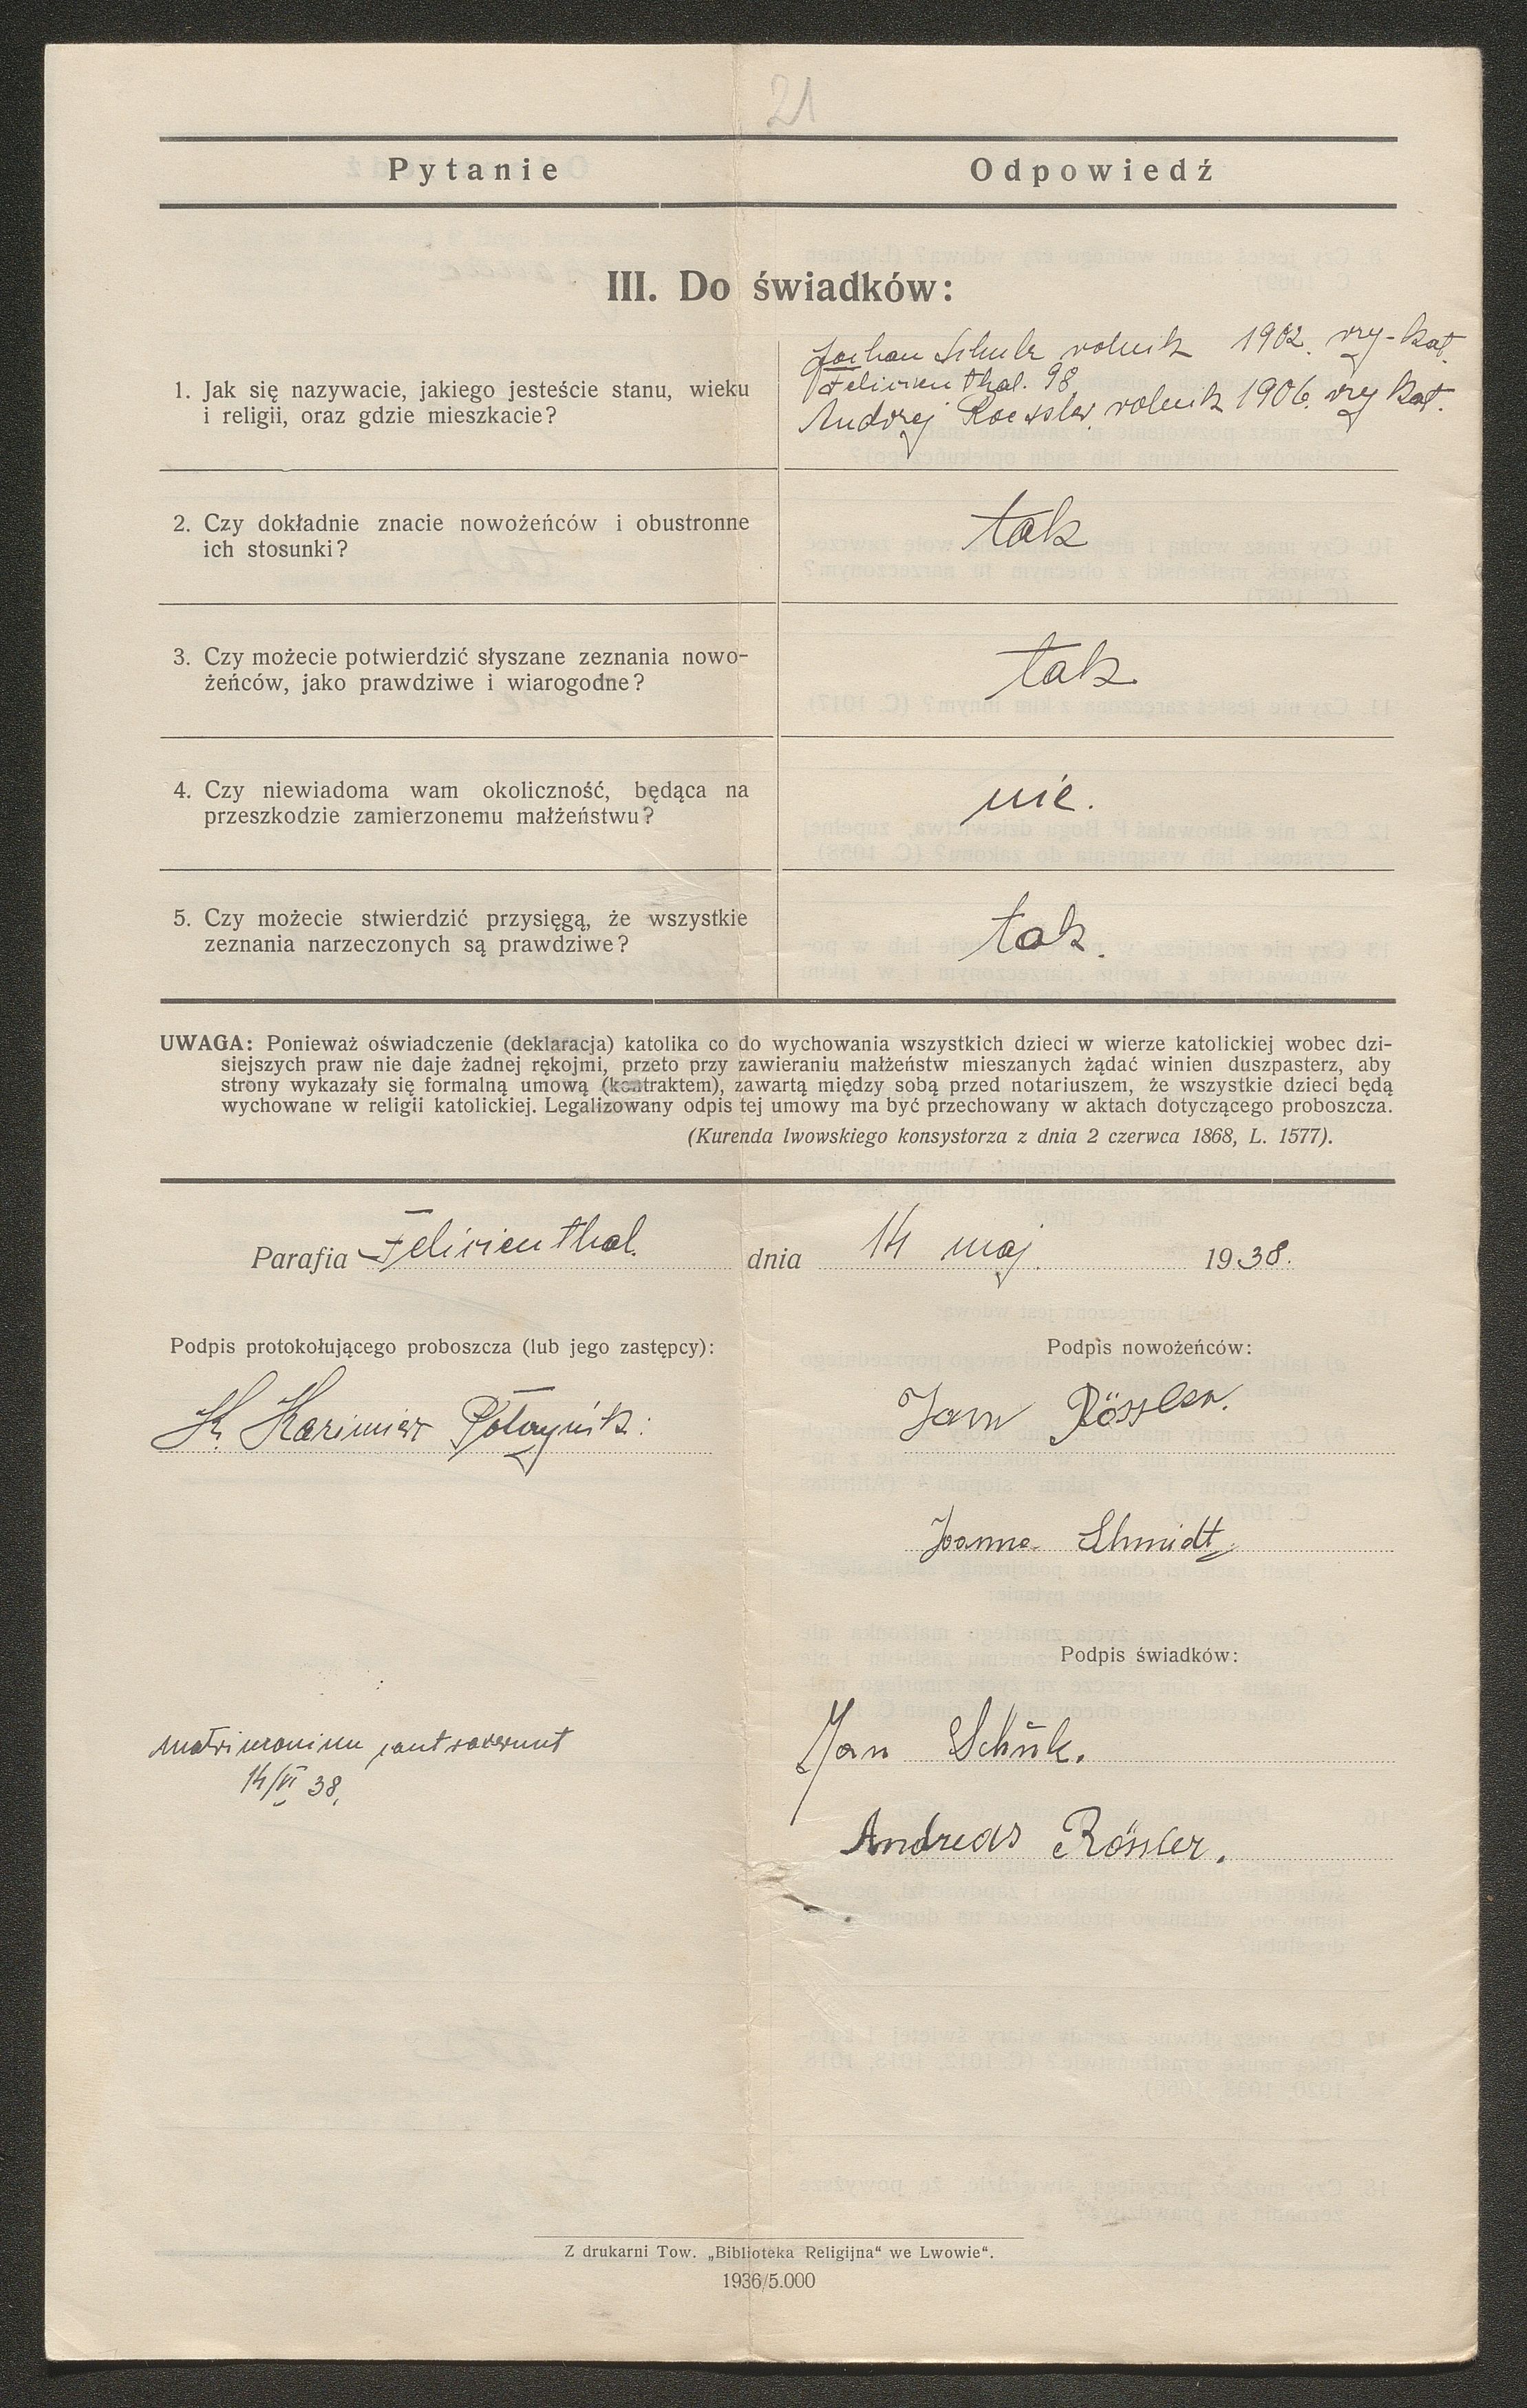 21
Pytanie Odpowiedź
III. Do świadków:
1. Jak się nazywacie, jakiego jesteście stanu, wieku
i religii, oraz gdzie mieszkacie?
rolnik 1902. rzy-kat.
Felicienthal. 98
Andrzej Roessler, rolnik 1906. rzy kat.
2. Czy dokładnie znacie nowożeńców i obustronne
ich stosunki?
tak
3. Czy możecie potwierdzić słyszane zeznania nowo-
żeńców, jako prawdziwe i wiarogodne?
tak
4. Czy niewiadoma wam okoliczność, będąca na
przeszkodzie zamierzonemu małżeństwu?
nie.
5. Czy możecie stwierdzić przysięgą, że wszystkie
zeznania narzeczonych są prawdziwe?
tak.
UWAGA: Ponieważ oświadczenie (deklaracja) katolika co do wychowania wszystkich dzieci w wierze katolickiej wobec dzi-
siejszych praw nie daje żadnej rękojmi, przeto przy zawieraniu małżeństw mieszanych żądać winien duszpasterz, aby
strony wykazały się formalną umową (kontraktem), zawartą między sobą przed notariuszem, że wszystkie dzieci będą
wychowane w religii katolickiej. Legalizowany odpis tej umowy ma być przechowany w aktach dotyczącego proboszcza.
(Kurenda lwowskiego konsystorza z dnia 2 czerwca 1868, L. 1577).
Parafia Felicienthal. dnia 14 maj. 1938.
Podpis protokołującego proboszcza (lub jego zastępcy): Podpis nowożeńców:
Kazimierz
Jan Rössler.
Joanna Schmidt
Podpis świadków:
matrimonium contraxerunt
14/VI 38.
Jan
Andreas Rössler.
Z drukarni Tow. „Biblioteka Religijna“ we Lwowie“.
1936/5.000